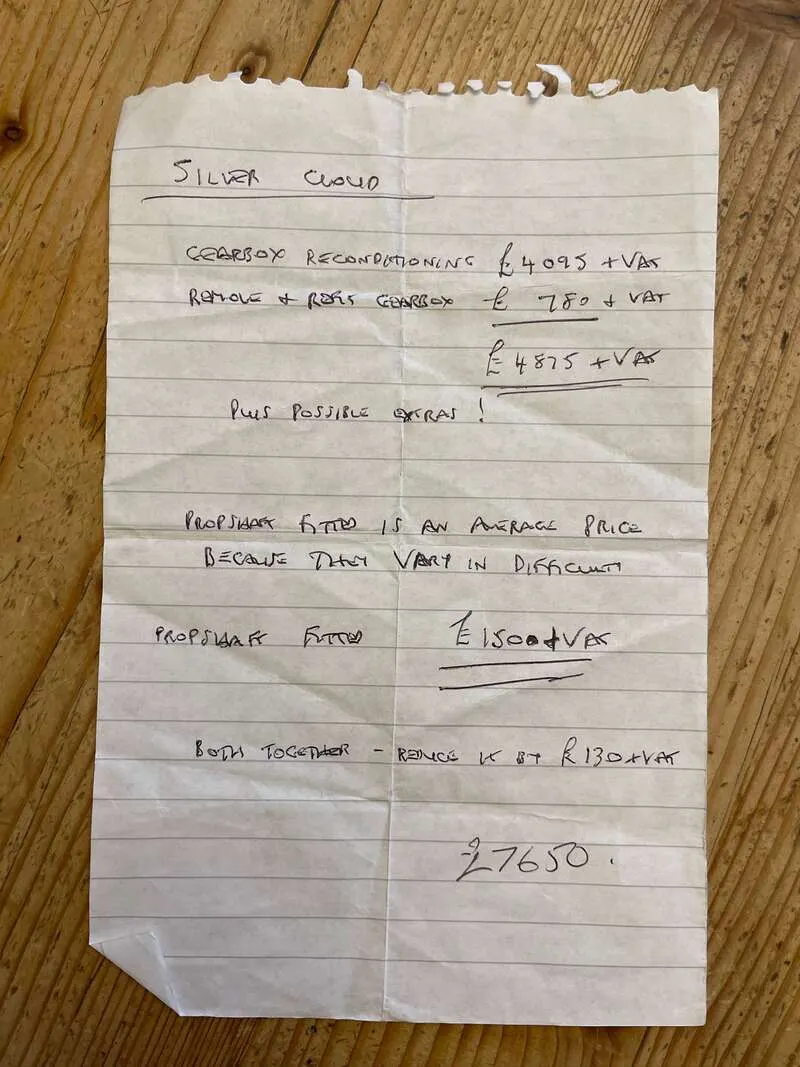 SILVER CLOUD
GEARBOX RECONDITIONING £4095 + VAT
REMOVE & REFIT GEARBOX £ 780 + VAT
£4875 + VAT
PLUS POSSIBLE EXTRAS !
PROPSHAFT FITTED IS AN AVERAGE PRICE
BECAUSE THEY VARY IN DIFFICULTY
PROPSHAFT FITTED £1500 + VAT
BOTH TOGETHER - REDUCE IT BY £130 + VAT
£7650.